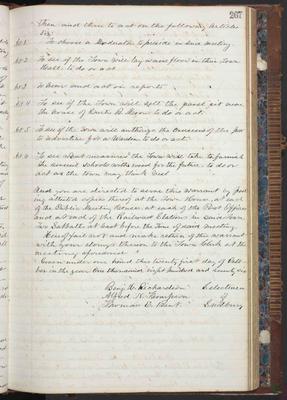 267
Then and there to act on the following Articles
Viz
Art 1 To choose a Moderator to preside in said meeting.
Art 2 To see if the Town will lay a new floor in their Town
Hall to do or act
Art 3 To hear and act on reports
Art 4 To see if the Town will sell the parcel of near
the house of Curtis H. Moore to do or act.
Art 5 To see if the Town will authorize the Overseers of the Poor
to advertise for a Warden to do or act.
Art 6 To see what measures the Town will take to furnish
the several Schools with wood for the future to do or
act as the Town may think best
And you are directed to serve this warrant by post
ing attested copies thereof at the Town House, at each
of the Public Meeting Houses, at each of the Post Offices
and at each of the Railroad Stations in said Town,
two Sabbaths at least before the time of said meeting.
Hereof fail not and make return of this warrant
with your doings thereon to the Town Clerk at the
meeting aforesaid
Given under our hand this twenty first day of Octo
ber in the year One thousand eight hundred and seventy six
Benj. H. Richardson Selectmen
Alfred N. Thompson of
Thomas P. Hurlbut Sudbury